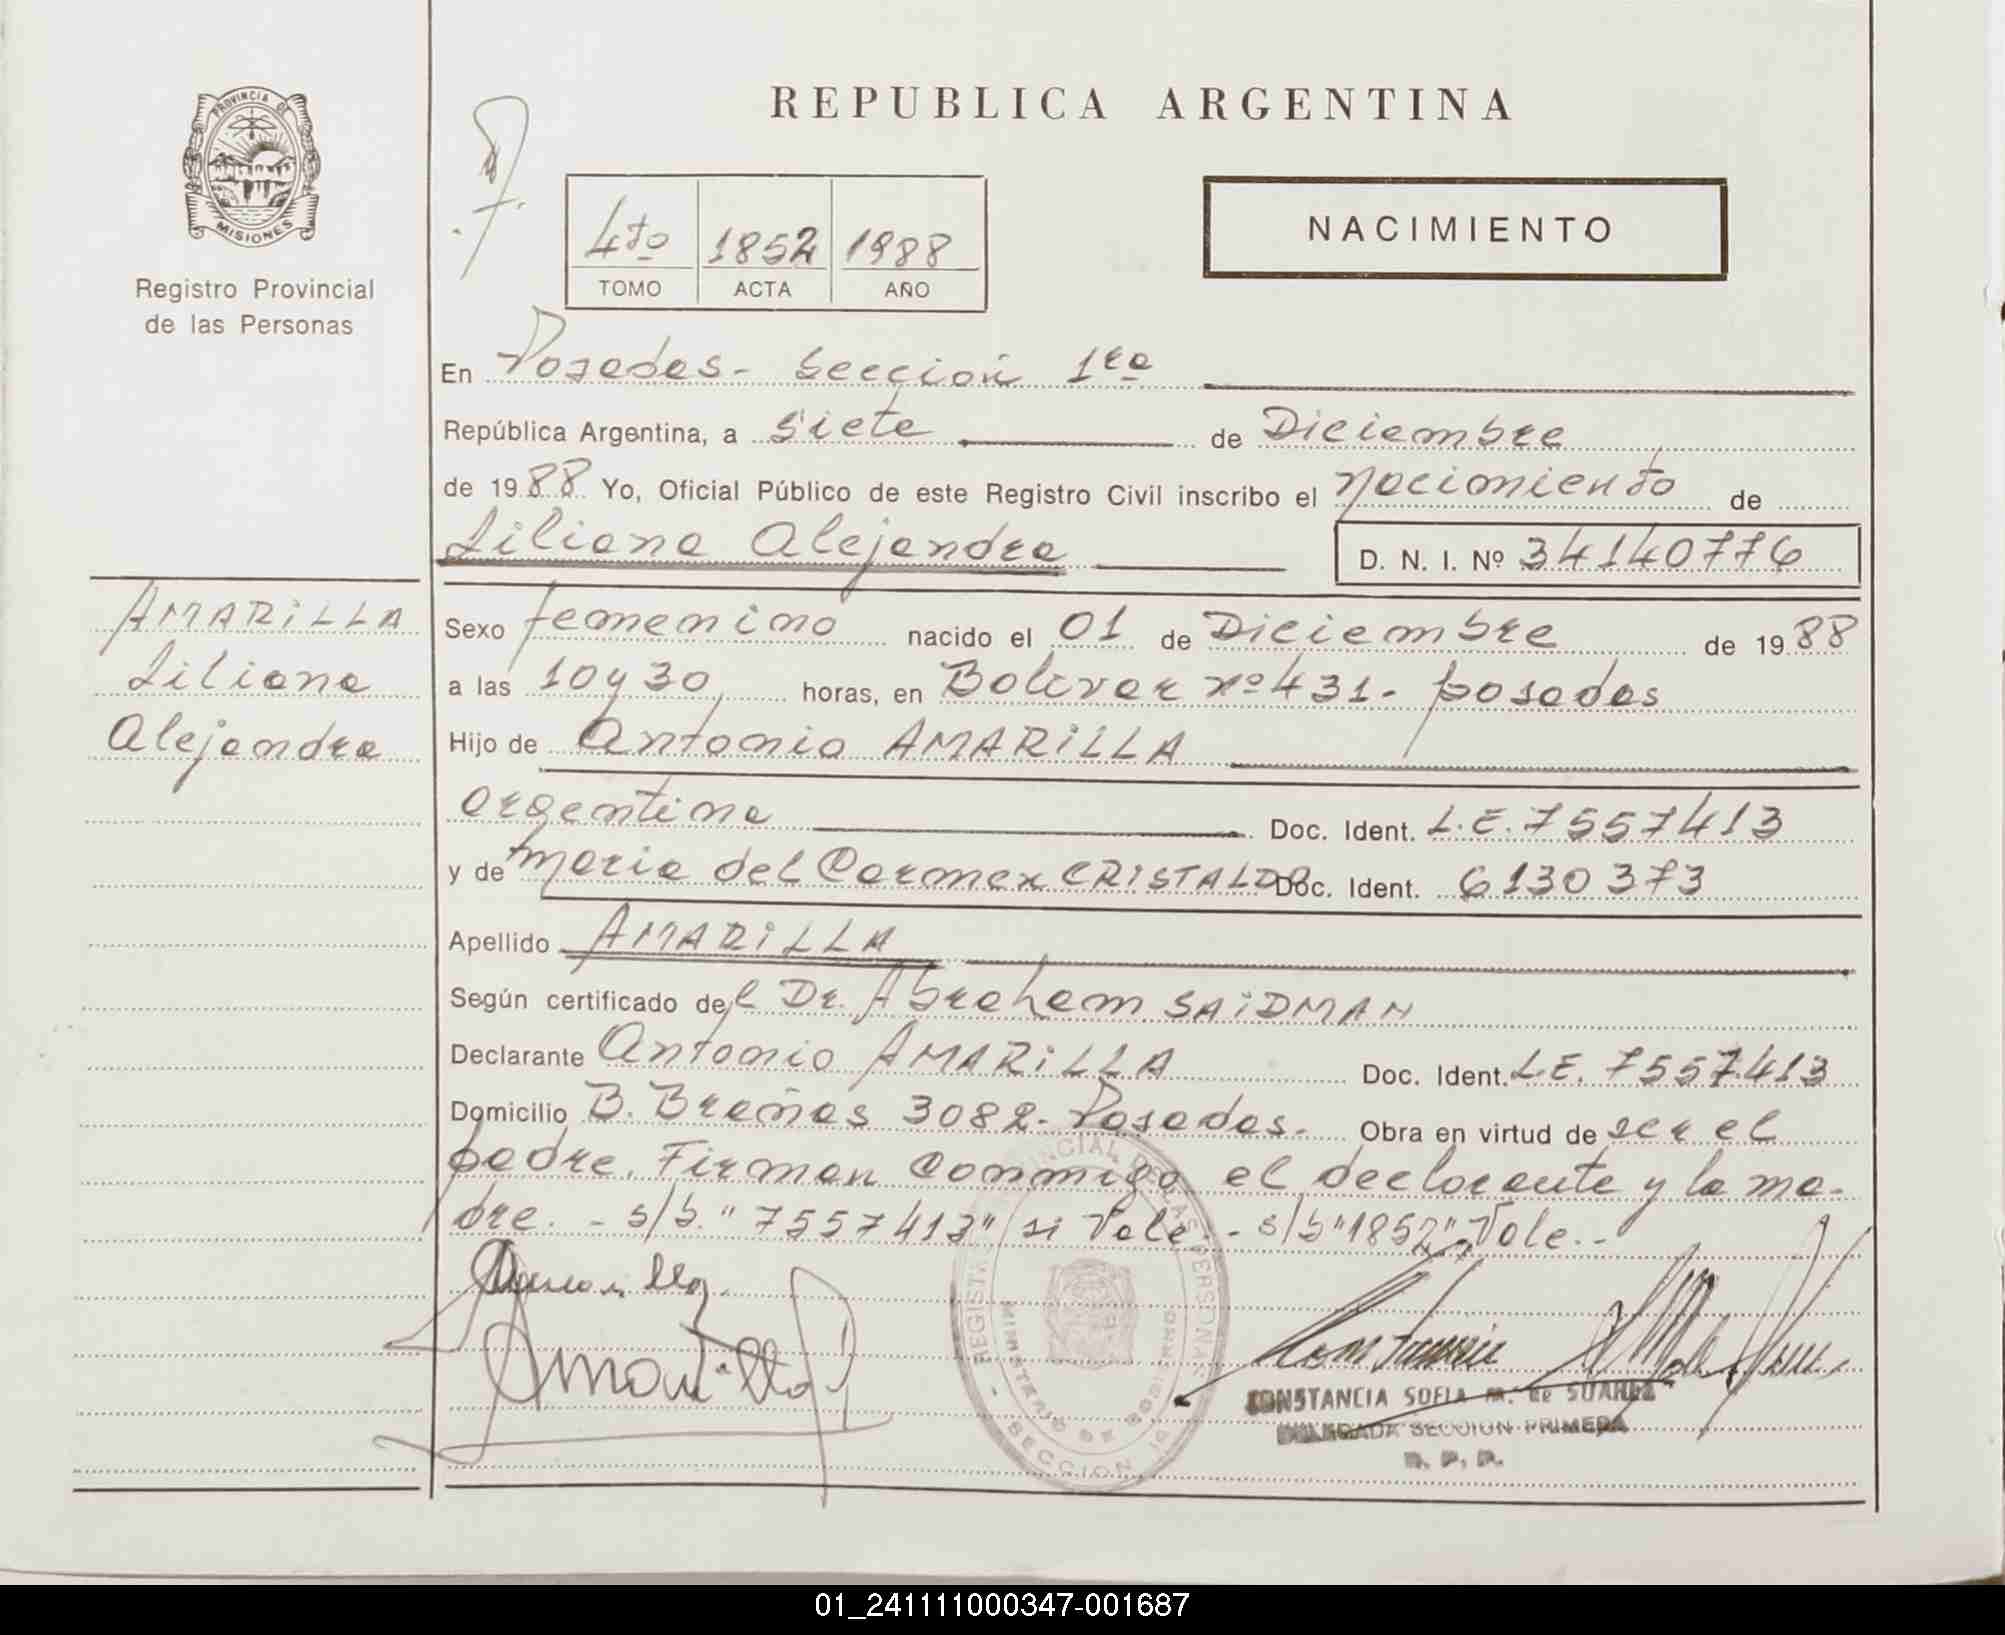 REPUBLICA ARGENTINA
PROVINCIA DE
MISIONES
Registro Provincial
de las Personas
4to 1852 1988
TOMO ACTA AÑO
NACIMIENTO
En Posadas - Sección 1ra
República Argentina, a siete de Diciembre
de 1988 Yo, Oficial Público de este Registro Civil inscribo el nacimiento de
Liliana Alejandra D. N. I. Nº 34140776
AMARILLA
Liliana
Alejandra
Sexo femenino nacido el 01 de Diciembre de 1988
a las 10 y 30 horas, en Bolivar nº 431 - posadas
Hijo de Antonio AMARILLA
argentina Doc. Ident. L.E. 7557413
y de Maria del Carmen CRISTALDO Doc. Ident. 6130373
Apellido AMARILLA
Según certificado del Dr. Abraham SAIDMAN
Declarante Antonio AMARILLA Doc. Ident. L.E. 7557413
Domicilio B. Breñas 3082 - Posadas - Obra en virtud de ser el
padre. Firman conmigo el declarante y la ma-
dre. - s/b. "7557413" si Vale - s/b "1852" Vale. -
Amarilla
REGISTRO PROVINCIAL DE LAS PERSONAS
MINISTERIO DE GOBIERNO
- SECCION 1a
CONSTANCIA SOFIA M. de SUAREZ
DELEGADA SECCION PRIMERA
R. P. P.
01_241111000347-001687